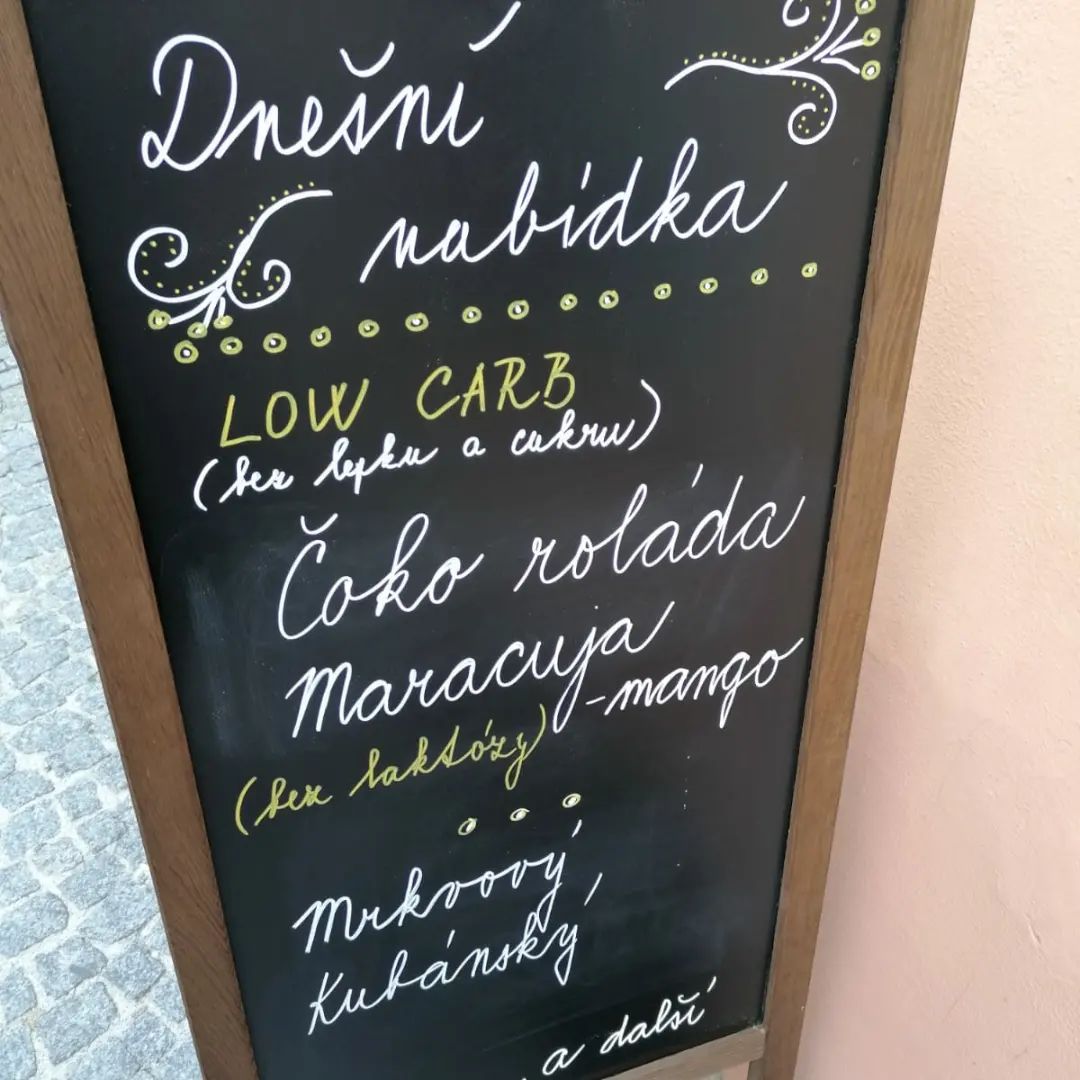 Dnešní
nabídka
LOW CARB
(bez lepku a cukru)
Čoko roláda
Maracuja
-mango
(bez laktózy)
Mrkvový
Kubánský
a další